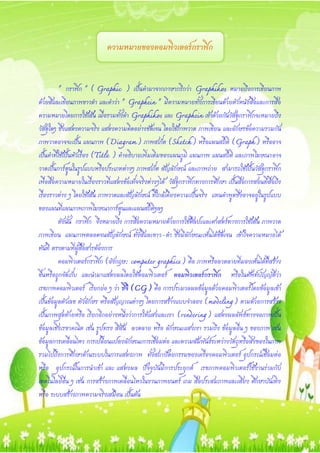 ความหมายของคอมพิวเตอร์กราฟิก
" กราฟิก " ( Graphic ) เป็นคำมาจากภาษากรีกว่า Graphikos หมายถึงการเขียนภาพ
ด้วยสีและเขียนภาพขาวดำ และคำว่า " Graphein " มีความหมายทั้งการเขียนด้วยตัวหนังสือและการสื่อ
ความหมายโดยการใช้เส้น เมื่อรวมทั้งคำ Graphikos และ Graphein เข้าด้วยกันวัสดุกราฟิกจะหมายถึง
วัสดุใดๆ ซึ่งแสดงความจริง แสดงความคิดอย่างชัดเจน โดยใช้ภาพวาด ภาพเขียน และอักษรข้อความรวมกัน
ภาพวาดอาจจะเป็น แผนภาพ (Diagram) ภาพสเก็ต (Sketch) หรือแผนสถิติ (Graph) หรืออาจ
เป็นคำที่ใช้เป็นหัวเรื่อง (Title) คำอธิบายเพิ่มเติมของแผนภูมิ แผนภาพ แผนสถิติ และภาพโฆษณาอาจ
วาดเป็นการ์ตูนในรูปแบบหรือประเภทต่างๆ ภาพสเก็ต สัญลักษณ์ และภาพถ่าย สามารถใช้เป็นวัสดุกราฟิก
เพื่อสื่อความหมายในเรื่องราวที่แสดงข้อเท็จจริงต่างๆได้ วัสดุกราฟิกทางการศึกษา เป็นสื่อการสอนที่เน้นใน
เรื่องราวต่าง ๆ โดยใช้เส้น ภาพวาดและสัญลักษณ์ ที่ใกล้เคียงความเป็นจริง แทนคำพูดที่อาจอยู่ในรูปแบบ
ของแผนที่แผนภาพภาพโฆษณาการ์ตูนและแผนสถิติฯลฯ
ดังนั้น กราฟิก จึงหมายถึง การสื่อความหมายด้วยการใช้ศิลปและศาสตร์ทางการใช้เส้น ภาพวาด
ภาพเขียน แผนภาพตลอดจนสัญลักษณ์ ทั้งสีและขาว-ดำ ซึ่งมีลักษณะเห็นได้ชัดเจน เข้าใจความหมายได้
ทันที ตรงตามที่ผู้สื่อสารต้องการ
คอมพิวเตอร์กราฟิก (อังกฤษ: computer graphics) คือ ภาพหรือลวดลายที่มองเห็นได้ที่สร้าง
ขึ้นหรือถูกจัดเก็บ และนำมาแสดงผลโดยใช้คอมพิวเตอร์ คอมพิวเตอร์กราฟิก หรือในศัพท์บัญญัติว่า
เรขภาพคอมพิวเตอร์ เรียกย่อ ๆ ว่า ซีจี (CG) คือ การประมวลผลข้อมูลด้วยคอมพิวเตอร์โดยข้อมูลเข้า
เป็นข้อมูลตัวเลข ตัวอักษร หรือสัญญาณต่างๆ โดยการสร้างแบบจำลอง (modeling) ตามด้วยการสร้าง
เป็นภาพสุดท้ายหรือ เรียกอีกอย่างหนึ่งว่าการให้แสงและเงา (rendering) แสดงผลลัพธ์ทางจอภาพเป็น
ข้อมูลเชิงเรขาคณิต เช่น รูปทรง สีสัน ลวดลาย หรือ ลักษณะแสงเงา รวมถึง ข้อมูลอื่น ๆ ของภาพ เช่น
ข้อมูลการเคลื่อนไหว การเปลี่ยนแปลงลักษณะการเชื่อมต่อ และความสัมพันธ์ระหว่างวัตถุหรือสิ่งของในภาพ
รวมไปถึงการศึกษาด้านระบบในการแสดงภาพ ทั้งสถาปัตยกรรมของเครื่องคอมพิวเตอร์ อุปกรณ์เชื่อมต่อ
หรือ อุปกรณ์ในการนำเข้า และ แสดงผล ปัจจุบันมีการประยุกต์ เรขภาพคอมพิวเตอร์ใช้งานร่วมกับ
เทคโนโลยีอื่น ๆ เช่น การสร้างภาพเคลื่อนไหวในงานภาพยนตร์ เกม สื่อประสมภาพและเสียง ศึกษาบันเทิง
หรือ ระบบสร้างภาพความจริงเสมือน เป็นต้น